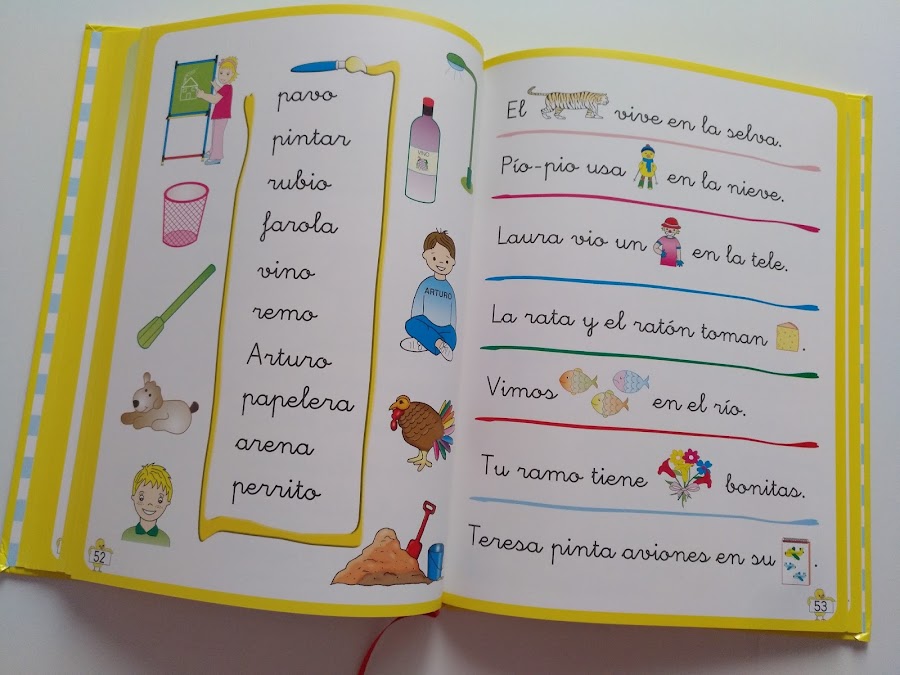 pavo
pintar
rubio
farola
vino
remo
Arturo
papelera
arena
perrito
VINO
ARTURO
52
El vive en la selva.
Pío-pio usa en la nieve.
Laura vio un en la tele.
La rata y el ratón toman .
Vimos en el río.
Tu ramo tiene bonitas.
Teresa pinta aviones en su .
53